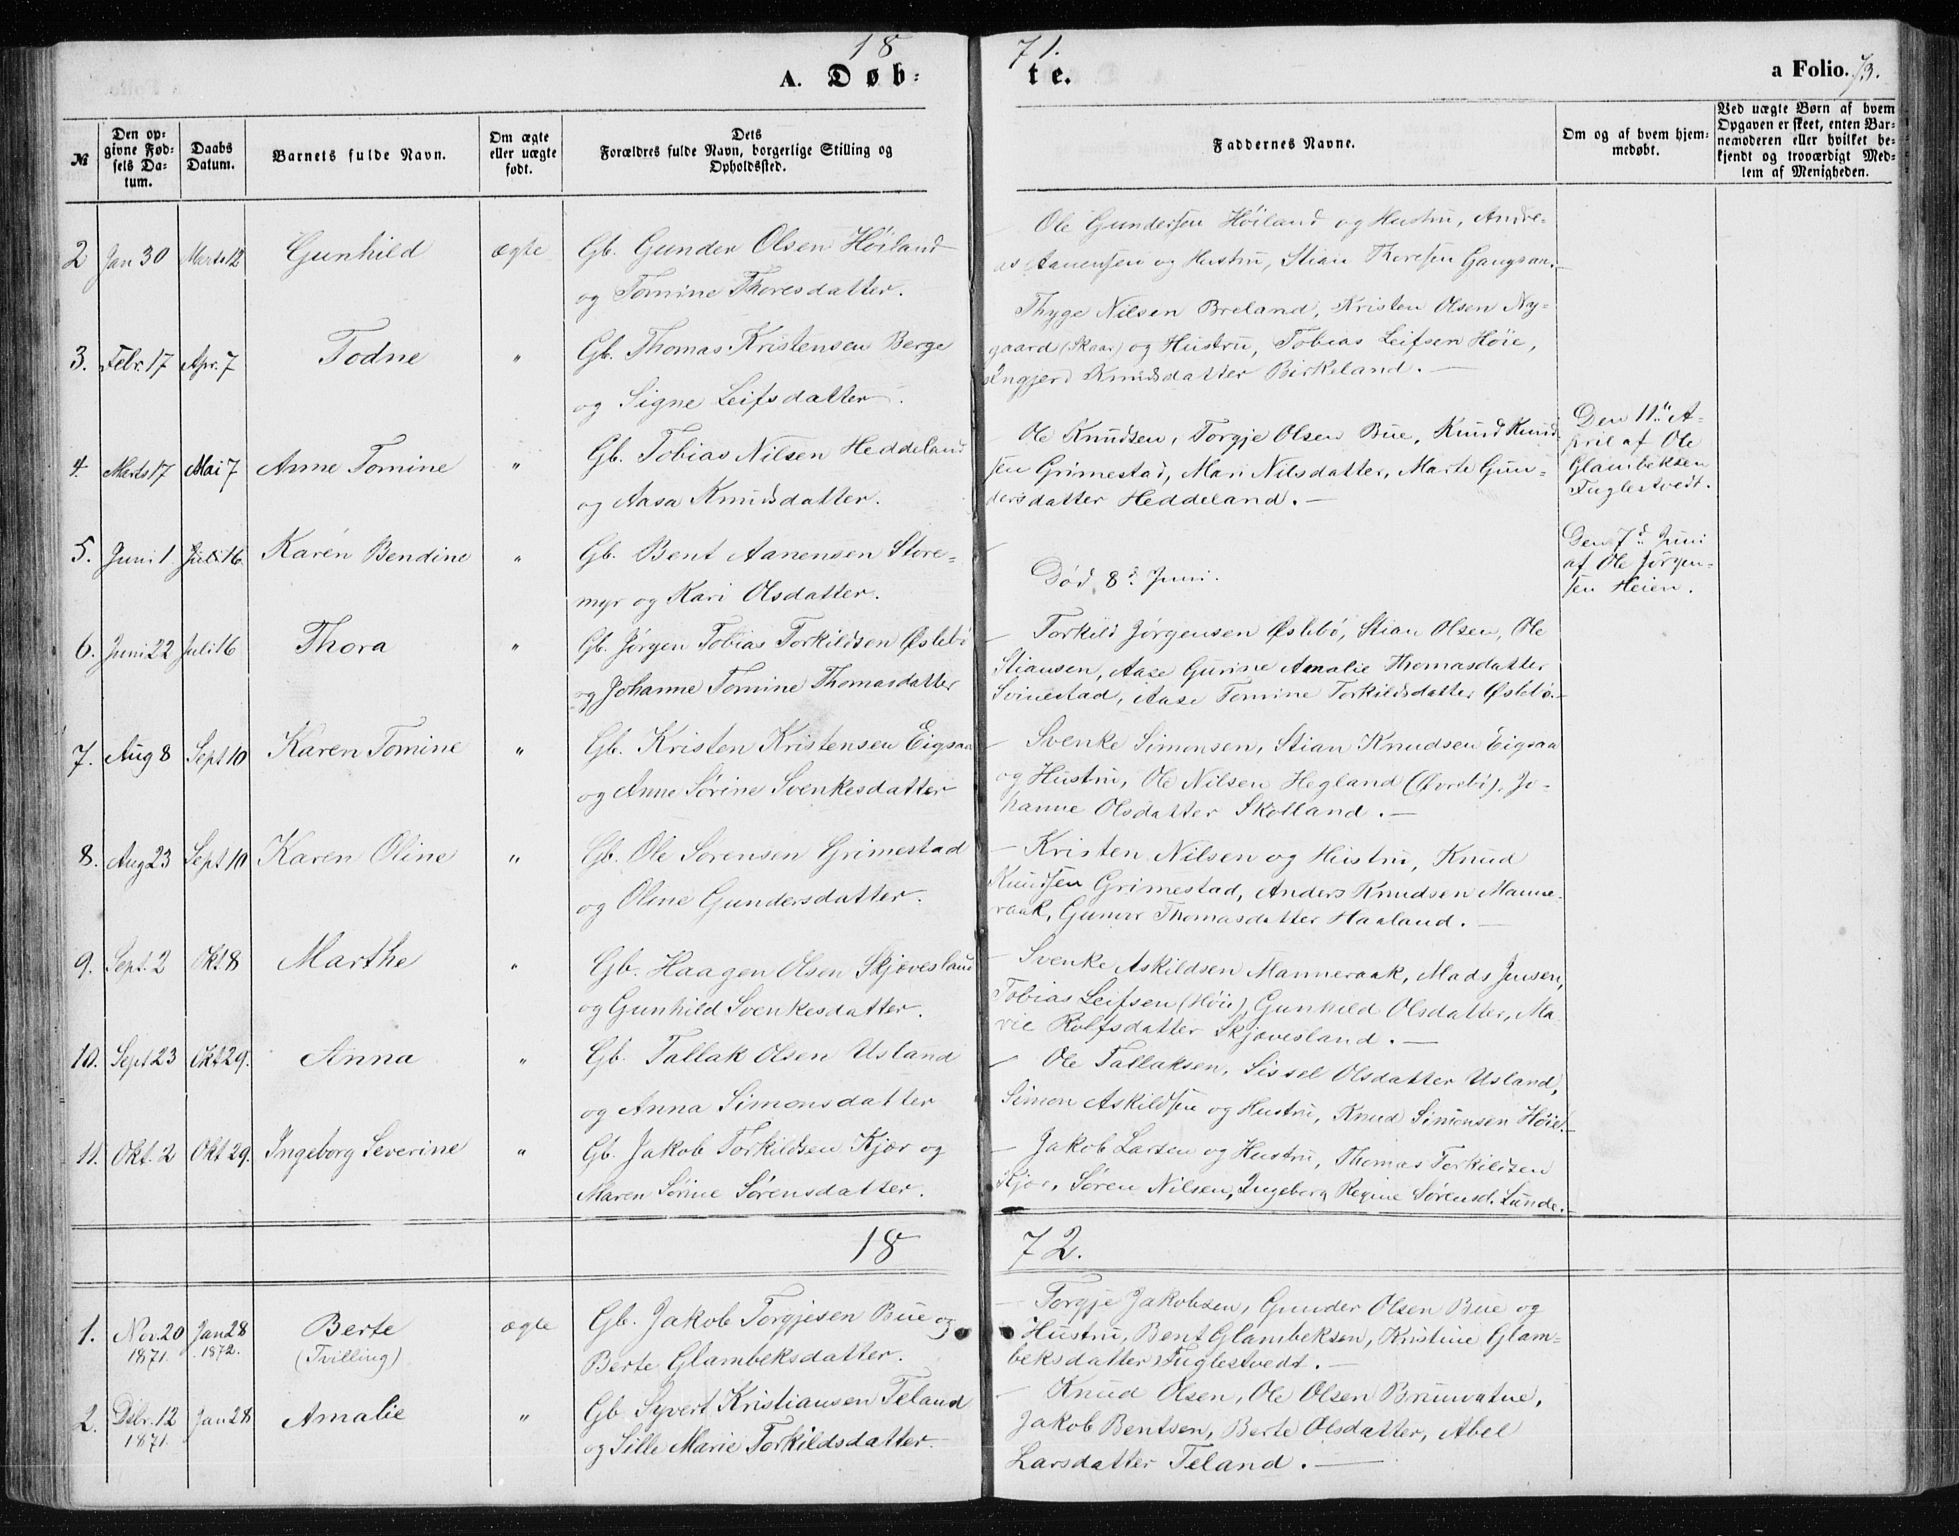 18 71.
A. Døb: te. a Folio. 73.
№
Den op-
givne Fød-
sels Da-
tum.
Daabs
Datum.
Barnets fulde Navn.
Om ægte
eller uægte
født.
Dets
Forældres fulde Navn, borgerlige Stilling og
Opholdssted.
Faddernes Navne.
Om og af hvem hjem-
medøbt.
Ved uægte Børn af hvem
Opgaven er skeet, enten Bar-
nemoderen eller hvilket be-
kjendt og troværdigt Med-
lem af Menigheden.
2 Jan 30 Marts 12 Gunhild ægte Gb. Gunder Olsen Høiland
og Tomine Thoresdatter.
Ole Gundersen Høiland og Hustru, Andre-
as Aanensen og Hustru, Stian Thoresen Gangsaa.
3. Febr. 17 Apr. 7 Todne " Gb. Thomas Kristensen Berge
og Signe Leifsdatter.
Thyge Nilsen Breland, Kristen Olsen Ny-
gaard (Skaar) og Hustru, Tobias Leifsen Høie,
Ingjerd Knudsdatter Birkeland. —
4. Marts 17 Mai 7 Anne Tomine " Gb. Tobias Nilsen Heddeland
og Aasa Knudsdatter.
— Ole Knudsen, Torgje Olsen Bue, Knud Knud-
sen Grimestad, Mari Nilsdatter, Marte Gun-
dersdatter Heddeland. —
Den 11te A-
pril af Ole
Glambeksen
Fuglestvedt.
5. Juni 1. Juli 16 Karen Bendine " Gb. Bent Aanensen Store-
myr og Kari Olsdatter.
— Død 8d Juni.
Den 7d Juni
af Ole Jørgen-
sen Heien.
6. Juni 22 Juli 16 Thora " Gb. Jørgen Tobias Torkildsen Øslebø
og Johanne Tomine Thomasdatter
— Torkild Jørgensen Øslebø, Stian Olsen, Ole
Stiansen, Aase Gurine Amalie Thomasdatter
Svinestad, Aase Tomine Torkildsdatter Øslebø. —
7. Aug 8 Sept 10 Karen Tomine " Gb. Kristen Kristensen Eigsaa
og Anne Sørine Svenkesdatter
— Svenke Simonsen, Stian Knudsen Eigsaa
og Hustru, Ole Nilsen Hegland (Øvrebø), Jo-
hanne Olsdatter Skolland. —
8. Aug 23 Sept 10 Karen Oline " Gb. Ole Sørensen Grimestad
og Oline Gundersdatter.
— Kristen Nilsen og Hustru, Knud
Knudsen Grimestad, Anders Knudsen Manne-
raak, Gunvor Thomasdatter Haaland. —
9. Sept. 2 Okt 8 Marthe " Gb. Haagen Olsen Skjævesland
og Gunhild Svenkesdatter.
— Svenke Askildsen Manneraak, Mads Jensen,
Tobias Leifsen (Høie) Gunhild Olsdatter, Ma-
rie Rolfsdatter Skjævesland. —
10. Sept 23 Okt 29. Anna " Gb. Tallak Olsen Usland
og Anna Simonsdatter
— Ole Tallaksen, Sissel Olsdatter Usland,
Simon Askildsen og Hustru, Knud Simonsen Høie. —
11. Okt. 2 Okt 29. Ingeborg Severine " Gb. Jakob Torkildsen Kjær og
Maren Sørine Sørensdatter.
— Jakob Larsen og Hustru, Thomas Torkildsen
Kjær, Søren Nilsen, Ingeborg Regine Sørensd. Lunde.
18 72.
1. Nov. 20 Jan 28 Berte ægte Gb. Jakob Torgjesen Bue og
1871. 1872. (Tvilling) Berte Glambeksdatter.
— Torgje Jakobsen, Gunder Olsen Bue og
Hustru, Bent Glambeksen, Kristine Glam-
beksdatter Fuglestvedt. —
2. Dsbr. 12 Jan 28 Amalie " Gb. Syvert Kristiansen Teland
1871. og Sille Marie Torkildsdatter.
— Knud Olsen, Ole Olsen Brunvatne,
Jakob Bentsen, Berte Olsdatter, Abel
Larsdatter Teland. —